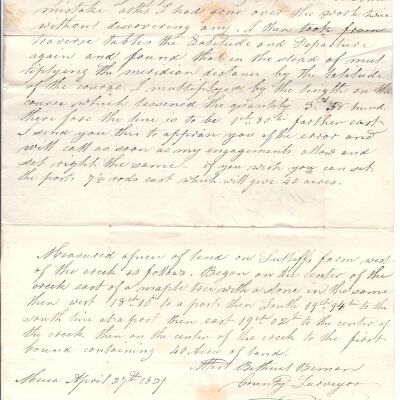 mistake as I had gone over the work twice
without discovering any. I then took from
traverse tables the Latitude and Departure
again and found that in the stead of mul
tiplying the meridian distance by the latitude
of the course, I multiplyed by the length on the
course which lessened the quantity 3.d 58 hund.
therefore the line is to be 1ch. 80th farther east
I send you this to apprise you of the error and
will call as soon as my engagements allow and
set right the same. if you wish you can set
the posts 7⅕ rods east which will give 40 acres.
Measured a piece of land on Sutliffs farm west
of the creek as follows. Began on the center of the
creek east of a maple tree with a stone in the same
then west 18ch to a post then South 19ch 94th to the
south line at a post then east 19ch 02th to the center of
the creek then on the center of the creek to the first
bound containing 40 Acres of land.
Attest Bethuel Beman
County Surveyor
Mecca April 27th 1831